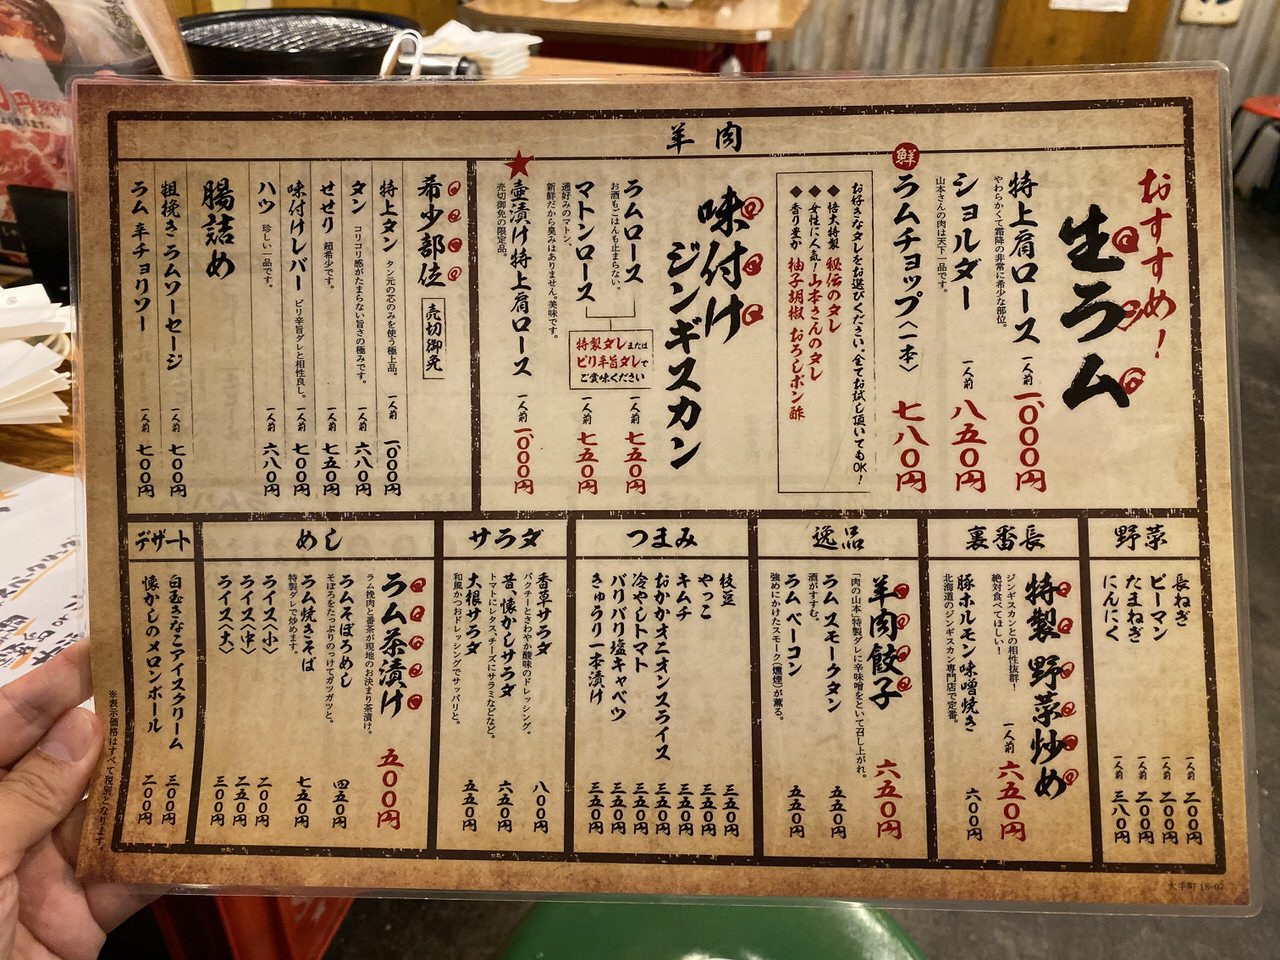 羊肉
おすすめ！
生ラム
特上肩ロース 一人前 一、〇〇〇円
やわらかくて霜降の非常に希少な部位。
ショルダー 一人前 八五〇円
山本さんの肉は天下一品です。
鮮
ラムチョップ〈一本〉 七八〇円
お好きなタレをお選びください、全てお試し頂いてもOK！
◆ 悟大特製 秘伝のタレ
◆ 女性に人気！山本さんのタレ
◆ 香り豊か 柚子胡椒 おろしポン酢
味付け
ジンギスカン
ラムロース 一人前 七五〇円
お酒もごはんも止まらない。
マトンロース 一人前 七五〇円
通好みのマトン、
新鮮だから臭みはありません。美味です。
特製ダレまたは
ピリ辛旨ダレで
ご賞味ください
壺漬け特上肩ロース 一人前 一、〇〇〇円
売切御免の限定品。
希少部位
売切御免
特上タン タン元の芯のみを使う極上品。 一人前 一、〇〇〇円
タン コリコリ感がたまらない旨さの極みです。 一人前 六八〇円
せせり 超希少です。 一人前 七五〇円
味付けレバー ピリ辛旨ダレと相性良し。 一人前 七〇〇円
ハツ 珍しい一品です。 一人前 六八〇円
腸詰め
粗挽きラムソーセージ 一人前 七〇〇円
ラム辛チョリソー 一人前 七〇〇円
野菜
長ねぎ 一人前 二〇〇円
ピーマン 一人前 二〇〇円
たまねぎ 一人前 二〇〇円
にんにく 一人前 三八〇円
裏番長
特製 野菜炒め 一人前 六五〇円
ジンギスカンとの相性抜群！
絶対食べてほしい！
豚ホルモン味噌焼き 六〇〇円
北海道のジンギスカン専門店で定番。
逸品
羊肉餃子 六五〇円
「肉の山本」特製ダレに辛味噌をといて召し上がれ。
ラムスモークタン 五五〇円
酒がすすむ。
ラムベーコン 五五〇円
強めにかけたスモーク（燻煙）が薫る。
つまみ
枝豆 三五〇円
やっこ 三五〇円
キムチ 三五〇円
おかかオニオンスライス 三五〇円
冷やしトマト 三五〇円
バリバリ塩キャベツ 三五〇円
きゅうり一本漬け 三五〇円
サラダ
香草サラダ 八〇〇円
パクチーとさわやか酸味のドレッシング。
昔、懐かしサラダ 六五〇円
トマトにレタス、チーズにサラミなどなど。
大根サラダ 五五〇円
和風かつおドレッシングでサッパリと。
めし
ラム茶漬け 五〇〇円
ラム挽肉と番茶が現地のお決まり茶漬け。
ラムそぼろめし 四五〇円
そぼろをたっぷりのっけてガツガツと。
ラム焼きそば 七五〇円
特製ダレで炒めます。
ライス〈小〉 二〇〇円
ライス〈中〉 二五〇円
ライス〈大〉 三〇〇円
デザート
白玉きなこアイスクリーム 三〇〇円
懐かしのメロンボール 二〇〇円
※表示価格はすべて税別となります。
大手町 18-07